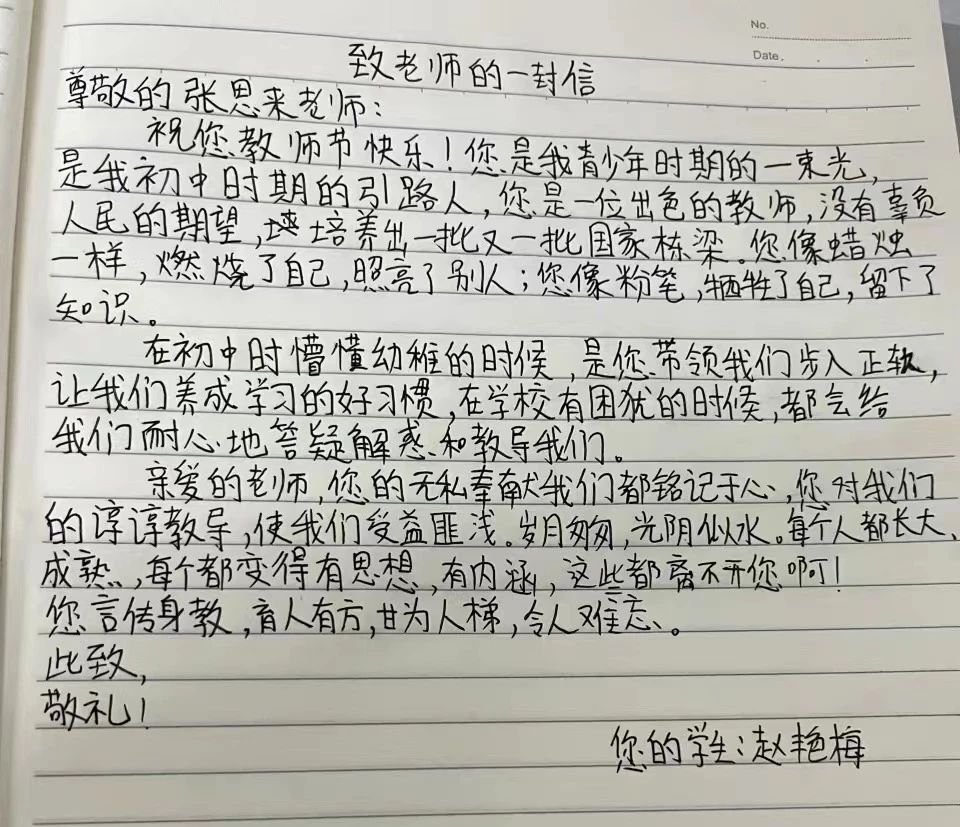 No.
Date.
致老师的一封信
尊敬的张恩来老师：
祝您教师节快乐！您是我青少年时期的一束光，
是我初中时期的引路人，您是一位出色的教师，没有辜负
人民的期望，培养出一批又一批国家栋梁。您像蜡烛
一样，燃烧了自己，照亮了别人；您像粉笔，牺牲了自己，留下了
知识。
在初中时懵懂幼稚的时候，是您带领我们步入正轨，
让我们养成学习的好习惯，在学校有困犹的时候，都会给
我们耐心地答疑解惑和教导我们。
亲爱的老师，您的无私奉献我们都铭记于心，您对我们
的谆谆教导，使我们受益匪浅。岁月匆匆，光阴似水。每个人都长大，
成熟，每个都变得有思想，有内涵，这些都离不开您啊！
您言传身教，育人有方，甘为人梯，令人难忘。
此致，
敬礼！
您的学生：赵艳梅